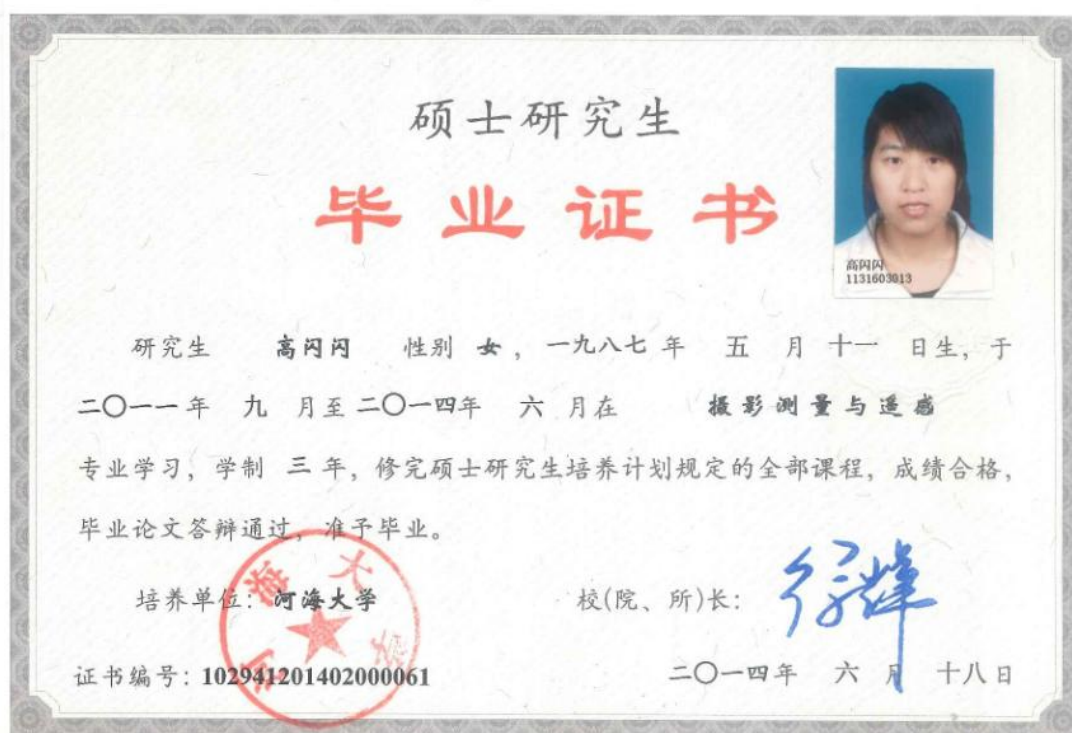 硕士研究生
毕业证书
高闪闪
1131603013
研究生 高闪闪 性别 女，一九八七年 五 月 十一 日生，于
二〇一一年 九 月至二〇一四年 六 月在 摄影测量与遥感
专业学习，学制 三 年，修完硕士研究生培养计划规定的全部课程，成绩合格，
毕业论文答辩通过，准予毕业。
培养单位：河海大学
校(院、所)长：
河海大学
证书编号：102941201402000061
二〇一四年 六 月 十八日